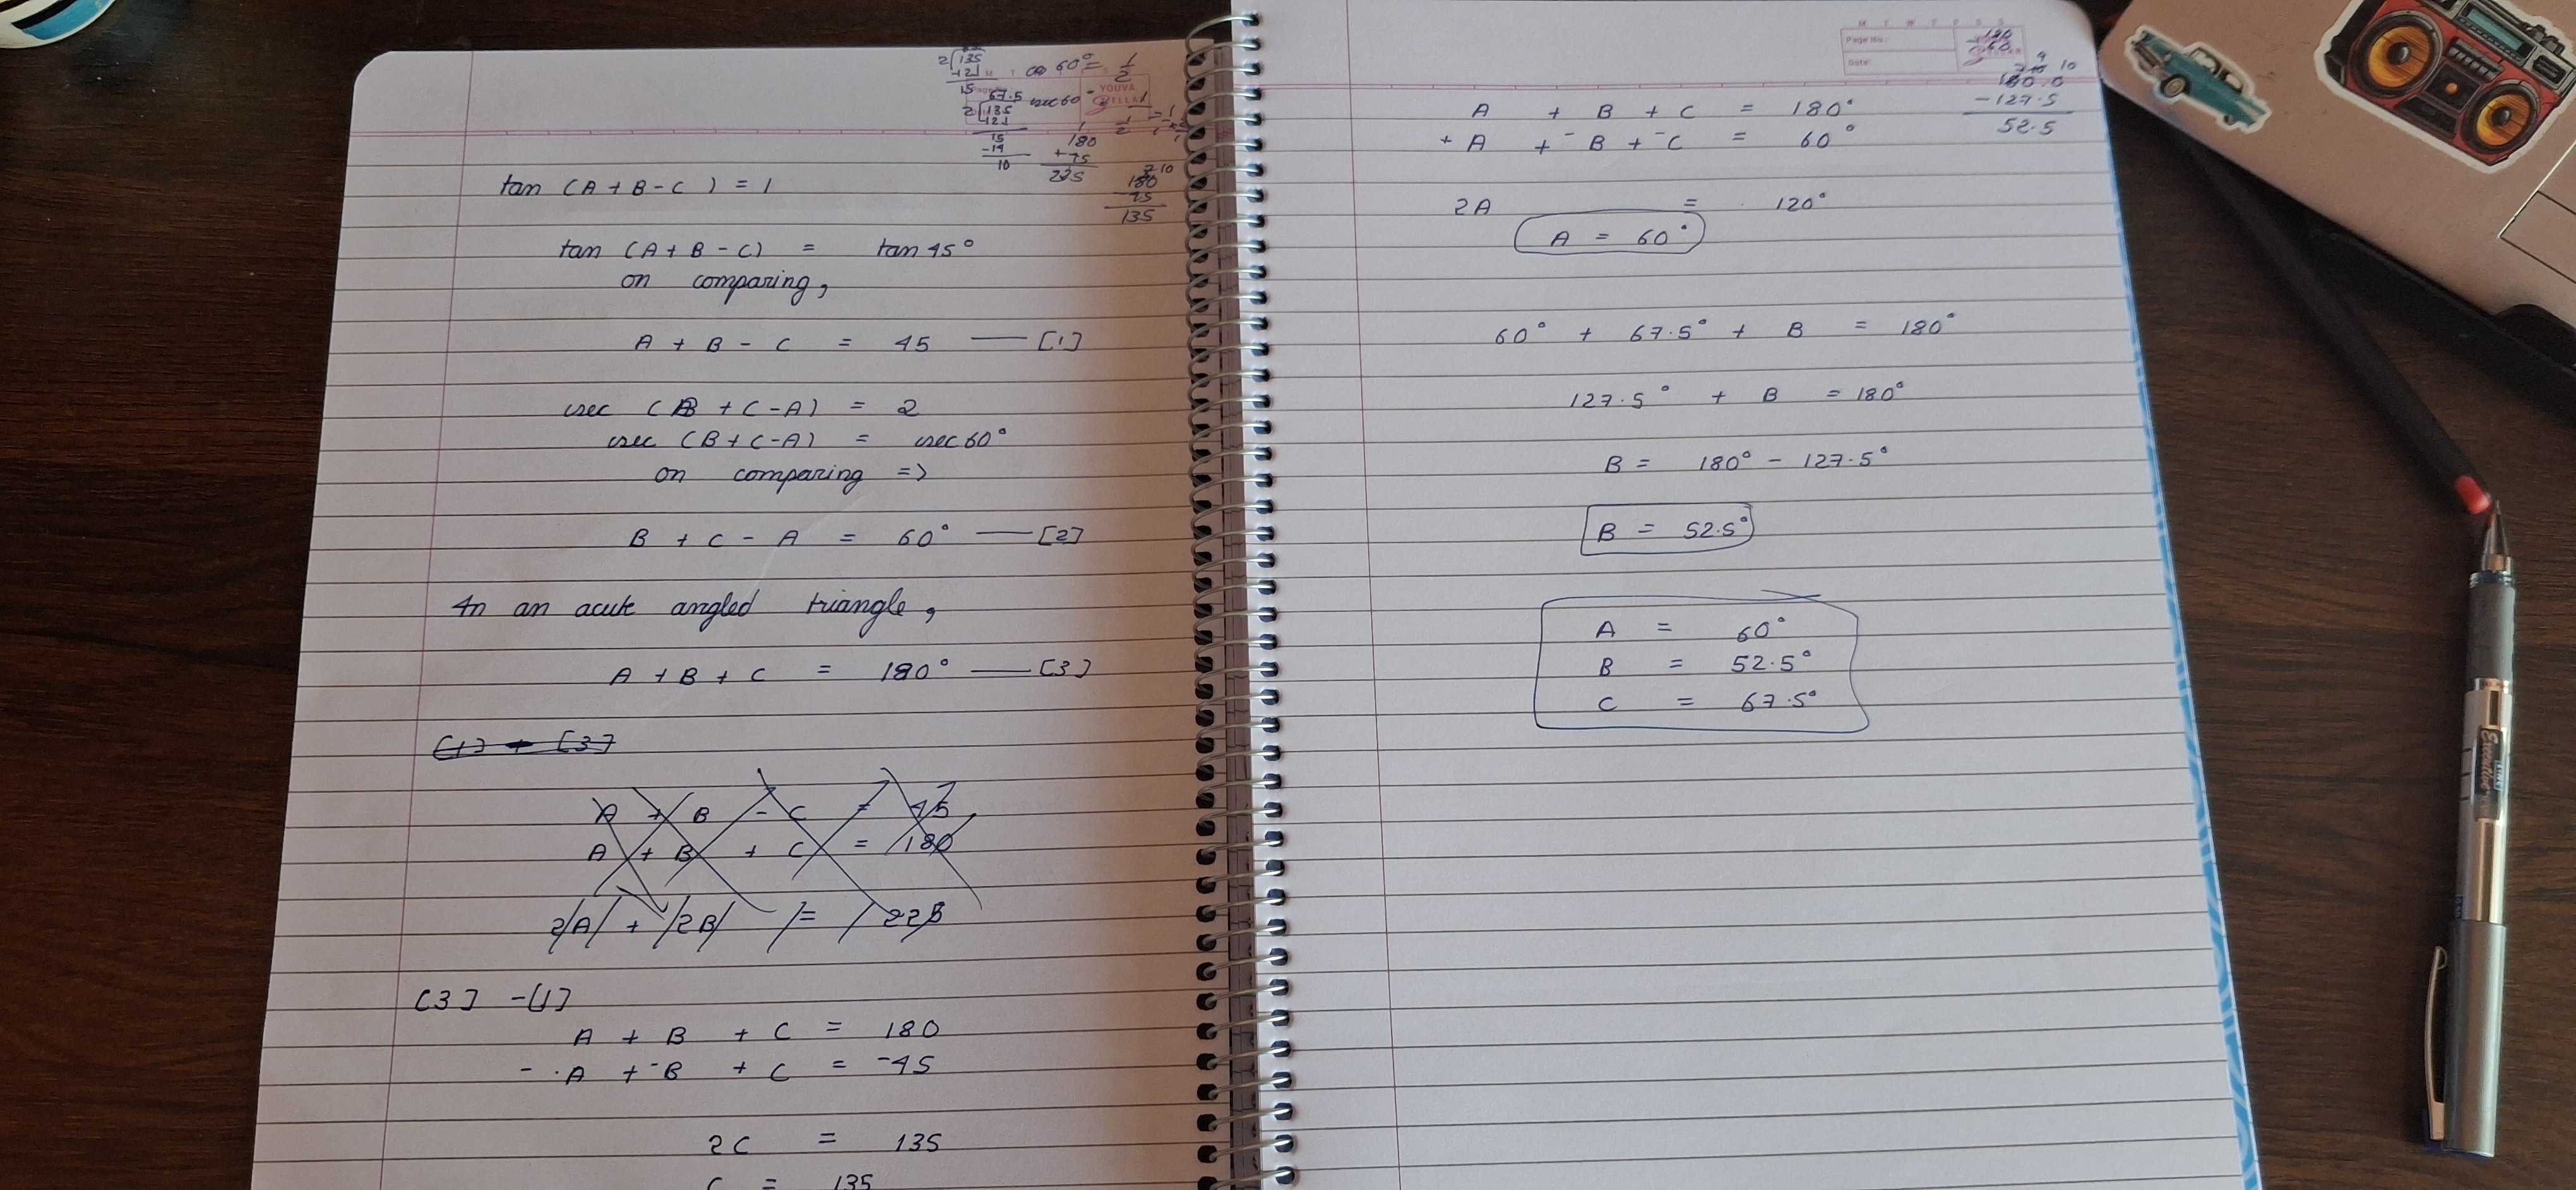 2 135
-12
15
67.5
2 135
121
15
-14
10
60° = 1/2
sec 60°
YOUVA
180
+ 75
225
10
180
45
135
tan (A + B - C) = 1
tan (A + B - C) = tan 45°
on comparing,
A + B - C = 45 — [1]
sec (B + C - A) = 2
sec (B + C - A) = sec 60°
on comparing =>
B + C - A = 60° — [2]
In an acute angled triangle,
A + B + C = 180° — [3]
[1] + [3]
A + B - C = 45
A + B + C = 180
2A + 2B = 225
[3] - [1]
A + B + C = 180
- A + - B + C = - 45
2C = 135
C = 135
M T W T F S S
Page No.:
Date:
180
-60
9
10
180.0
-127.5
52.5
A + B + C = 180°
+ A + - B + - C = 60°
2A = 120°
A = 60°
60° + 67.5° + B = 180°
127.5° + B = 180°
B = 180° - 127.5°
B = 52.5°
A = 60°
B = 52.5°
C = 67.5°
Executive